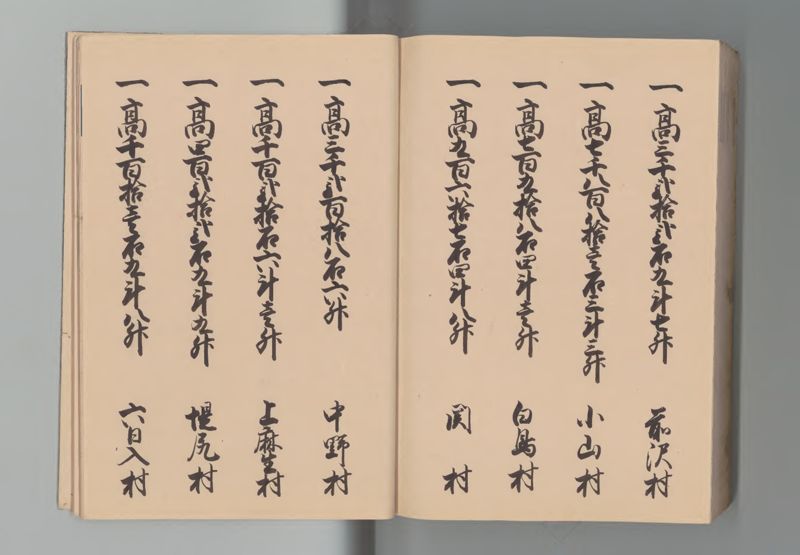 一高三千弐拾弐石九斗七升 前沢村
一高七千八百八拾壱石三斗三升 小山村
一高七百九拾八石四斗壱升 白鳥村
一高九百六拾七石四斗八升 関村
一高三千弐百拾八石六升 中野村
一高千百弐拾石六斗壱升 上麻生村
一高四百弐拾弐石九斗九升 堤尻村
一高千百拾壱石九斗八升 六日入村